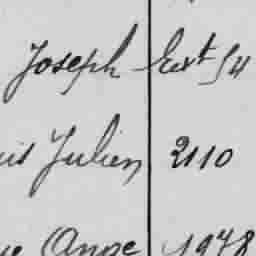 Joseph Ext 54
is Julien 2110
ue Ange 1978